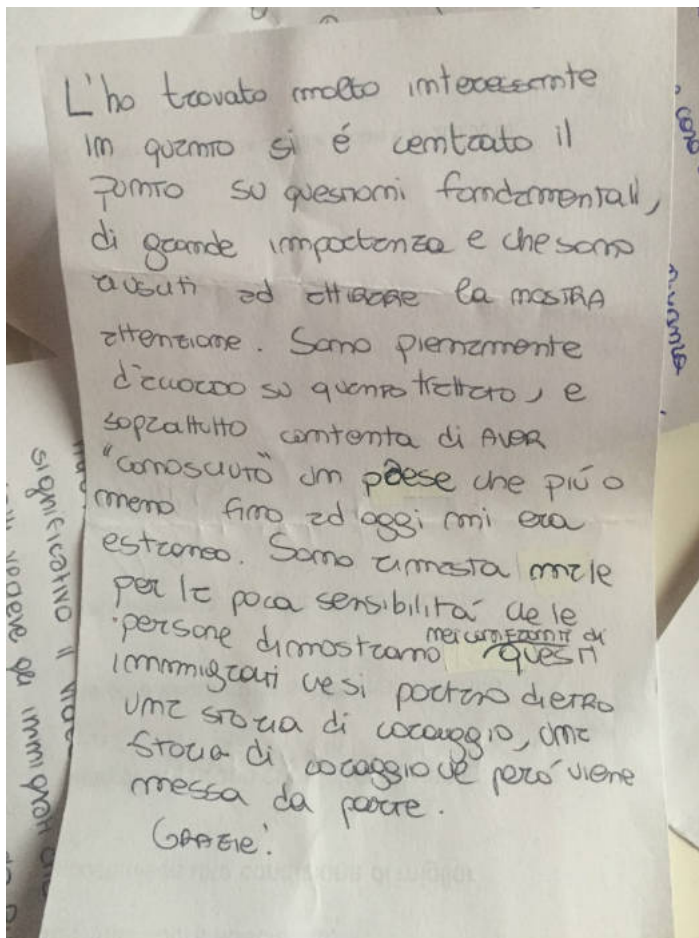 L'ho trovato molto interessante
in quanto si é centrato il
punto su questioni fondamentali,
di grande importanza e che sono
riusciti ad attirare la nostra
attenzione. Sono pienamente
d'accordo su quanto trattato, e
soprattutto contenta di AVER
"conosciuto" un paese che più o
meno fino ad oggi mi era
estraneo. Sono rimasta male
per la poca sensibilità che le
persone dimostrano nei confronti di
questi
immigrati che si portano dietro
una storia di coraggio, una
storia di coraggio che però viene
messa da parte.
GRAZIE!
significativo il
vedere gli immigrati che